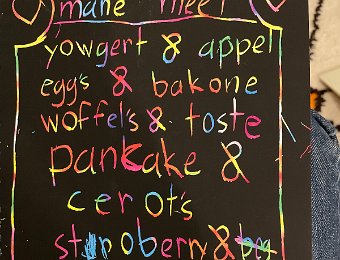 mane meel
yowgert & appel
egg's & bakone
woffel's & toste
pancake &
cerot's
stroberry &